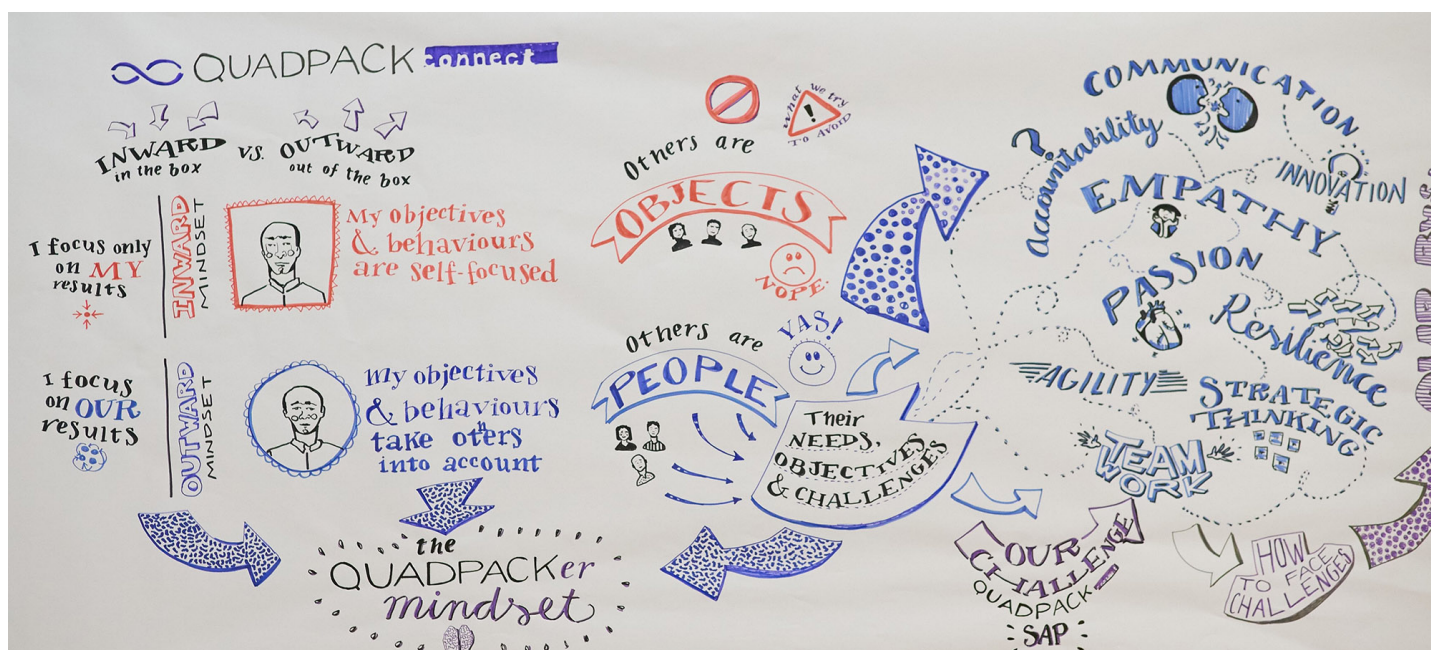 QUADPACK connect
INWARD vs. OUTWARD
in the box
out of the box
I focus only
on MY
results
INWARD
MINDSET
My objectives
& behaviours
are self-focused
I focus
on OUR
results
OUTWARD
MINDSET
my objectives
& behaviours
take others
into account
the
QUADPACKer
mindset
What we try
TO AVOID
!
Others are
OBJECTS
NOPE.
Others are
YAS!
PEOPLE
Their
NEEDS,
OBJECTIVES
& CHALLENGES
COMMUNICATION
?
Accountability
INNOVATION
EMPATHY
PASSION
Resilience
AGILITY
STRATEGIC
THINKING
TEAM
WORK
OUR
CHALLENGE
QUADPACK
SAP
HOW
TO FACE
CHALLENGES